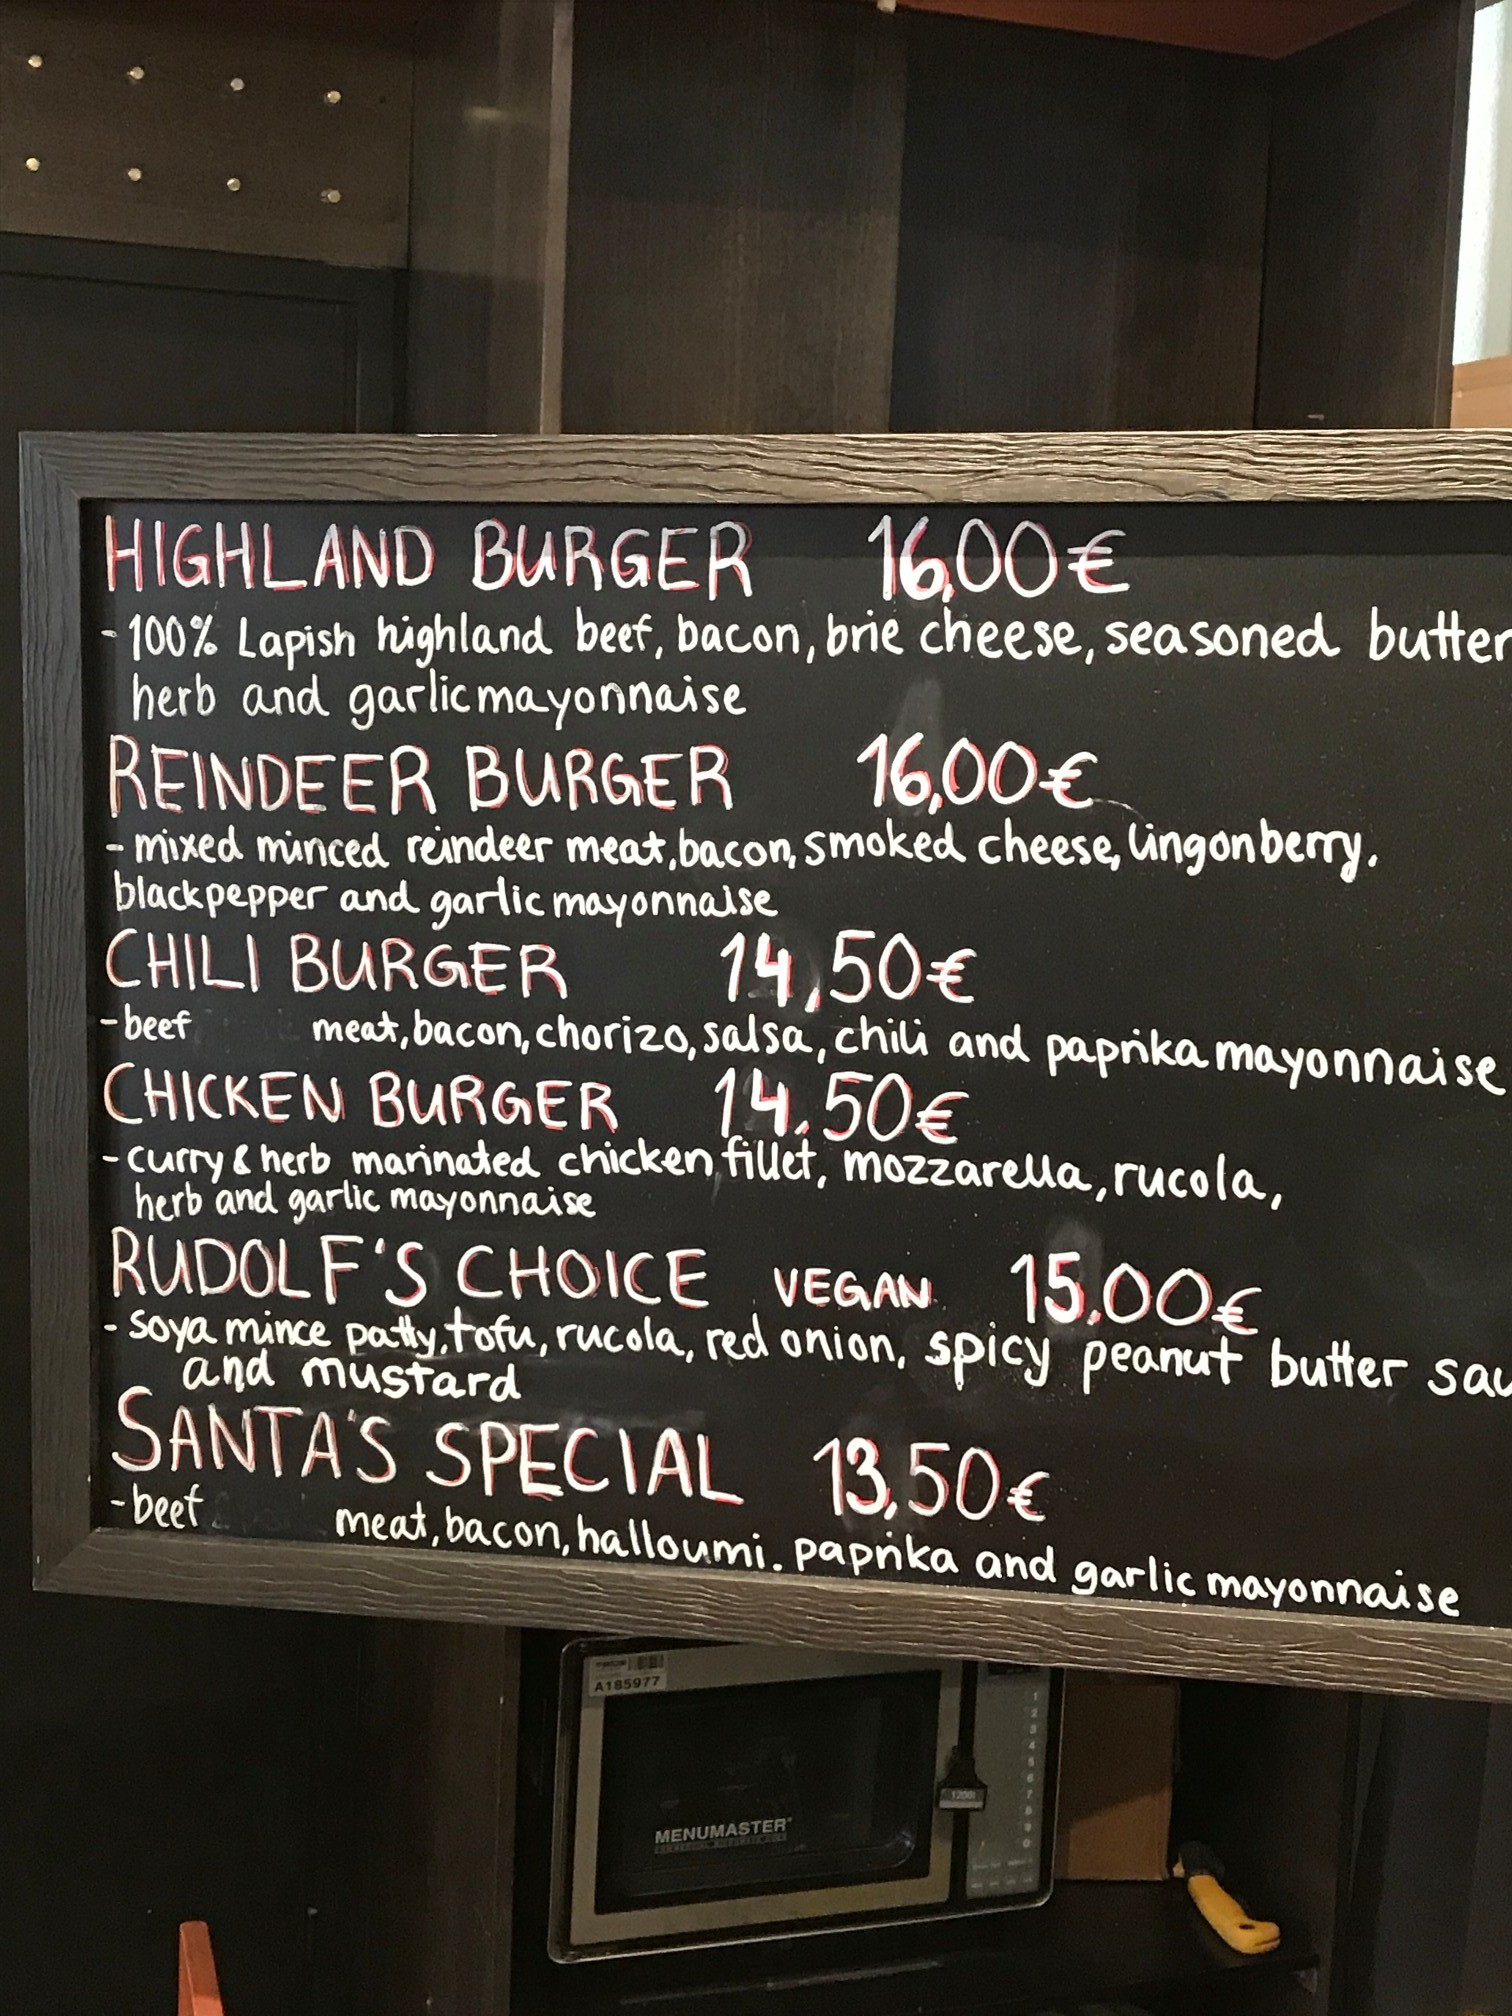 HIGHLAND BURGER 16,00€
- 100% Lapish highland beef, bacon, brie cheese, seasoned butter
herb and garlic mayonnaise
REINDEER BURGER 16,00€
- mixed minced reindeer meat, bacon, smoked cheese, lingonberry,
blackpepper and garlic mayonnaise
CHILI BURGER 14,50€
- beef meat, bacon, chorizo, salsa, chili and paprika mayonnaise
CHICKEN BURGER 14,50€
- curry & herb marinated chicken fillet, mozzarella, rucola,
herb and garlic mayonnaise
RUDOLF'S CHOICE VEGAN 15.00€
- soya mince patty, tofu, rucola, red onion, spicy peanut butter sau
and mustard
SANTA'S SPECIAL 13,50€
- beef meat, bacon, halloumi. paprika and garlic mayonnaise
A185977
1
2
3
4
5
6
7
8
9
0
MENUMASTER